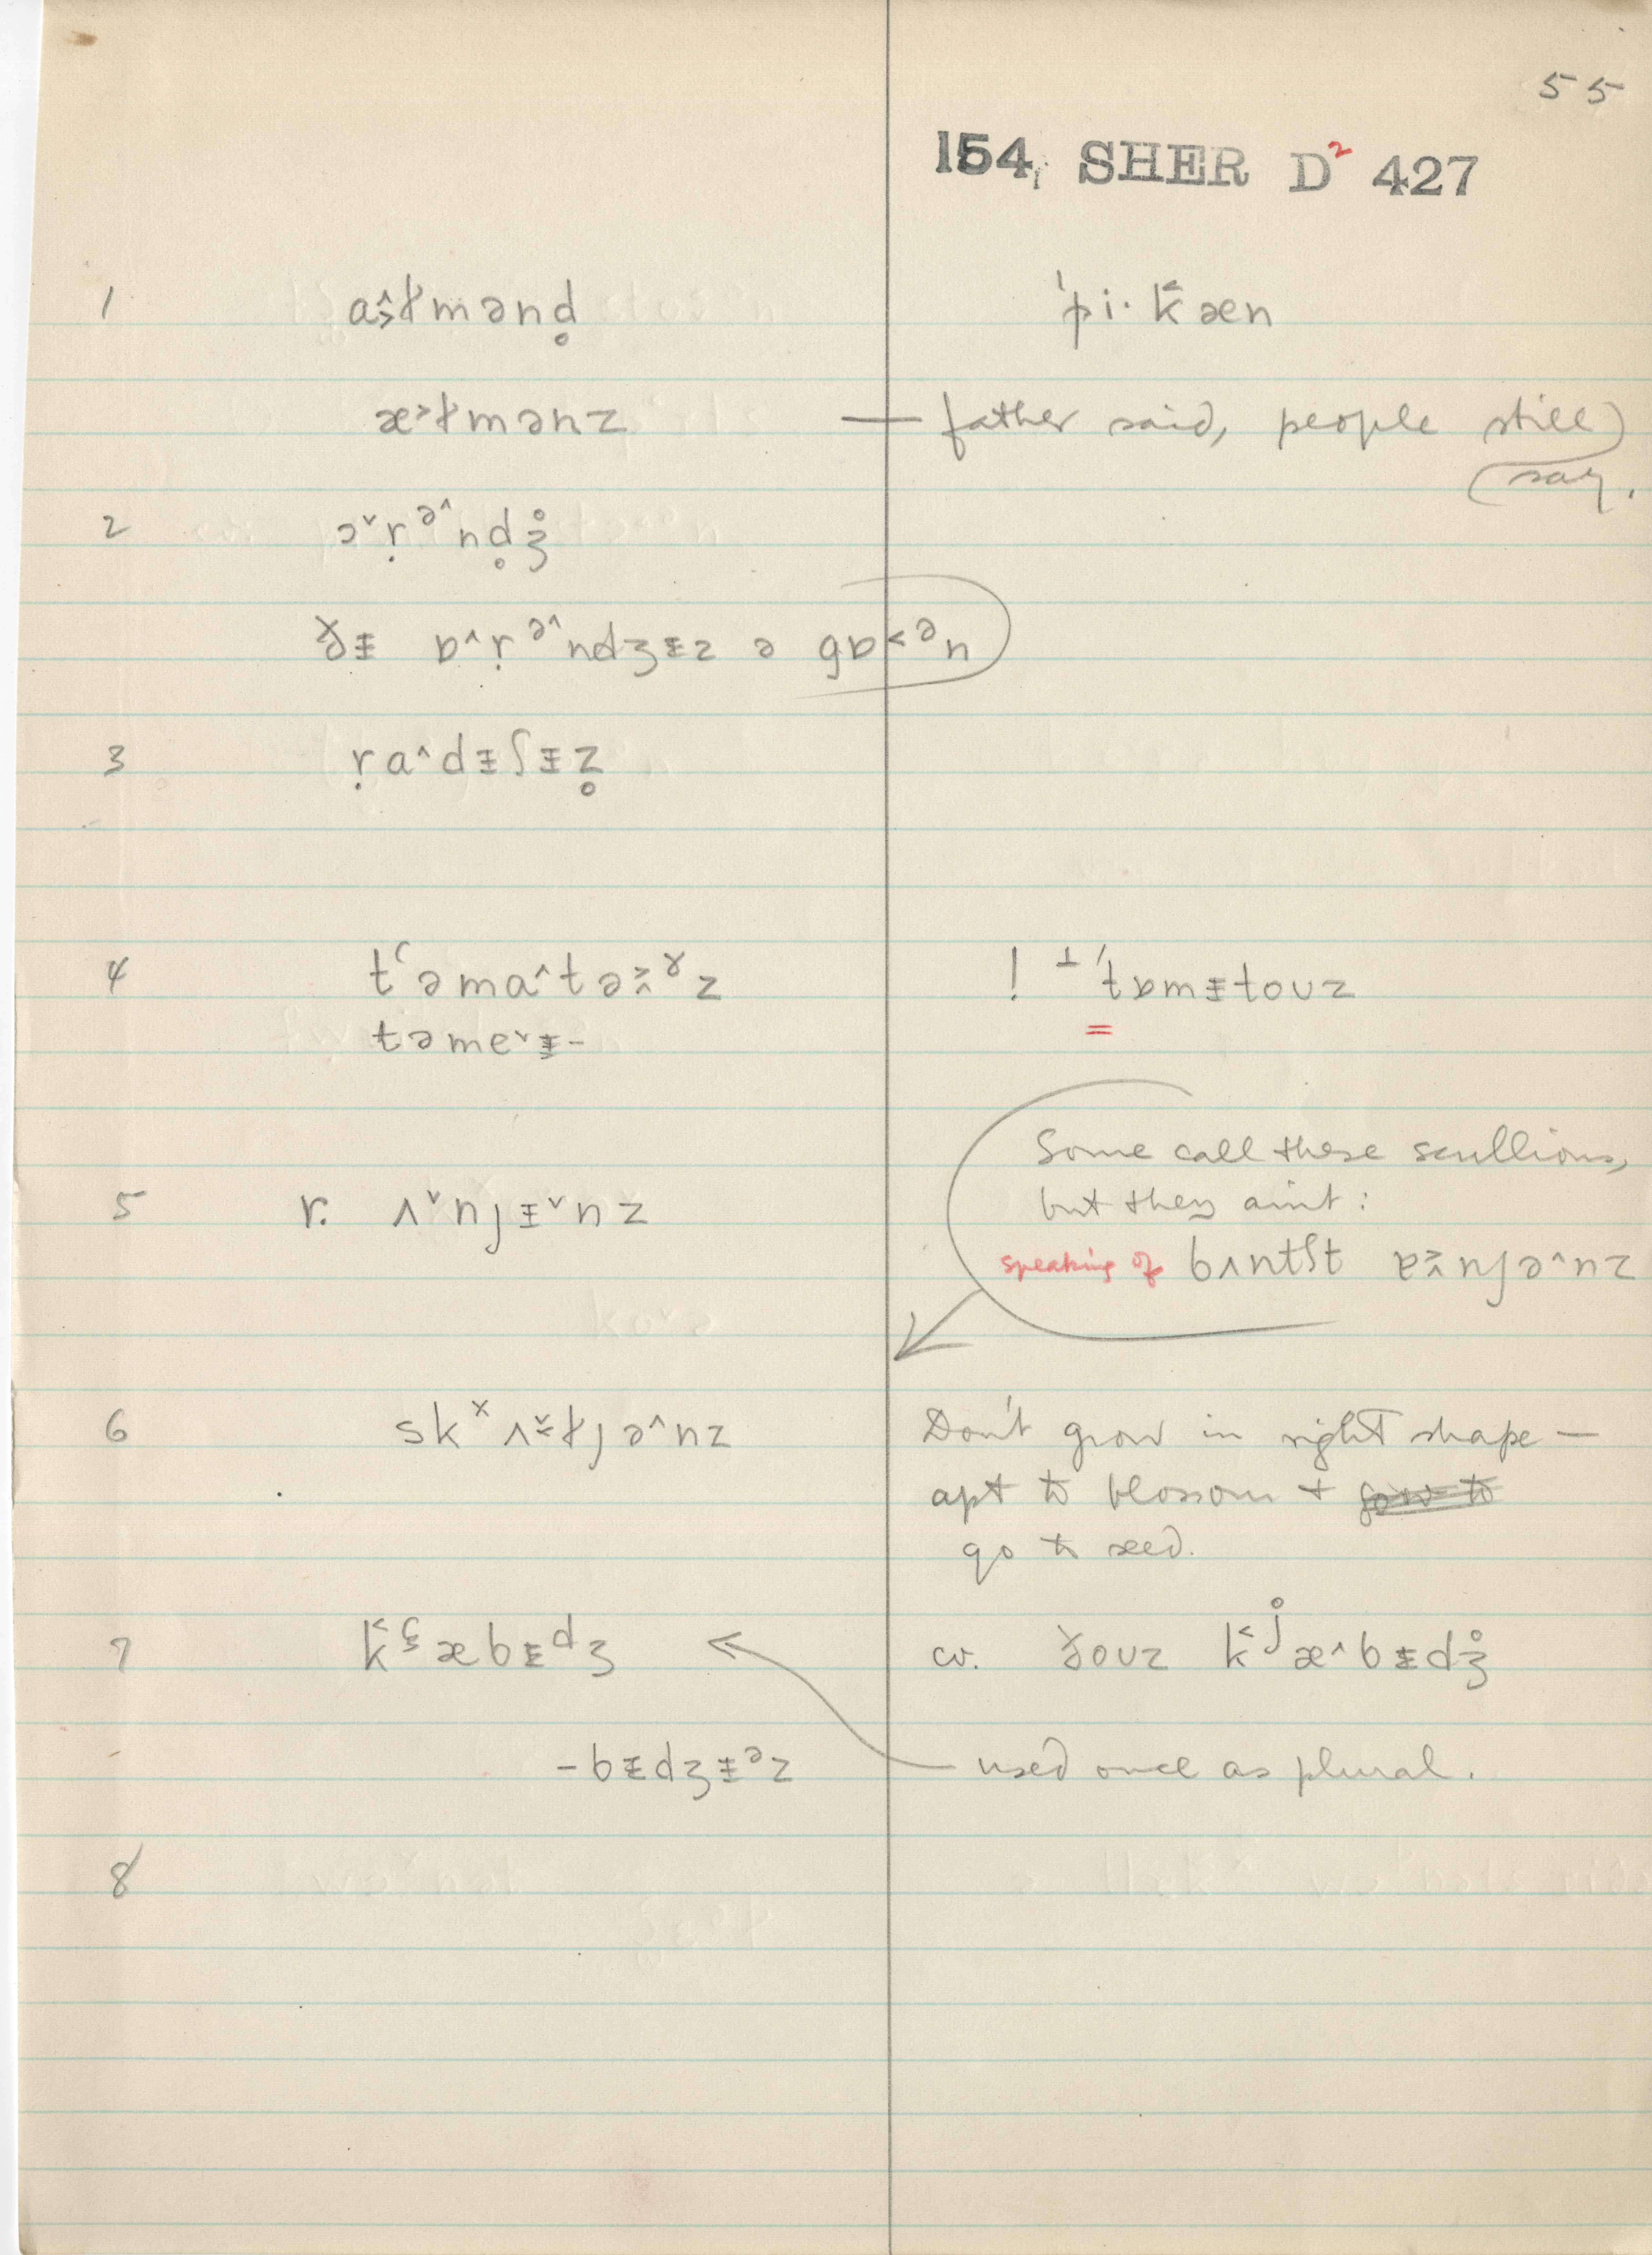 55
154 SHER D² 427
1 a˔˃ɫmənd̥ ˈpi·k̆æn
æ˃ɫmənz — father said, people still
say.
2 ɔˇṛᵊ^nd̥ʒ̊
ðᵻ ɒ^ṛᵊ^ndʒᵻz ə gɒ˂ᵊn
3 ṛa^dᵻʃᵻz̥
4 tʻəma^tə˃^ˠz ! ⊥ ˈtɒmᵻtoᴜz
təmeˇᵻ-
Some call these scullions,
5 r. ʌˇnjᵻˇnz but they aint:
speaking of bʌntʃt ɐ˃^njə^nz
6 skˣʌˇɫjə^nz Don't grow in right shape —
apt to blossom +
go to seed.
7 k˂ç˂æbᵻᵈʒ cv. ðoᴜz k˂ʲ̊æ^bᵻdʒ̊
-bᵻdʒᵻᵊz — used once as plural.
8